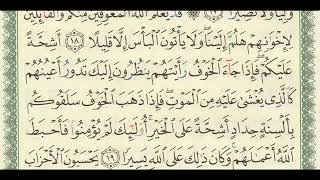 وَلِيًّا وَلَا نَصِيرًا ١٧ قَدْ يَعْلَمُ اللَّهُ الْمُعَوِّقِينَ مِنكُمْ وَالْقَائِلِينَ
لِإِخْوَانِهِمْ هَلُمَّ إِلَيْنَا وَلَا يَأْتُونَ الْبَأْسَ إِلَّا قَلِيلًا ١٨ أَشِحَّةً
عَلَيْكُمْ فَإِذَا جَاءَ الْخَوْفُ رَأَيْتَهُمْ يَنظُرُونَ إِلَيْكَ تَدُورُ أَعْيُنُهُمْ
كَالَّذِي يُغْشَىٰ عَلَيْهِ مِنَ الْمَوْتِ فَإِذَا ذَهَبَ الْخَوْفُ سَلَقُوكُم
بِأَلْسِنَةٍ حِدَادٍ أَشِحَّةً عَلَى الْخَيْرِ أُولَٰئِكَ لَمْ يُؤْمِنُوا فَأَحْبَطَ
اللَّهُ أَعْمَالَهُمْ وَكَانَ ذَٰلِكَ عَلَى اللَّهِ يَسِيرًا ١٩ يَحْسَبُونَ الْأَحْزَابَ